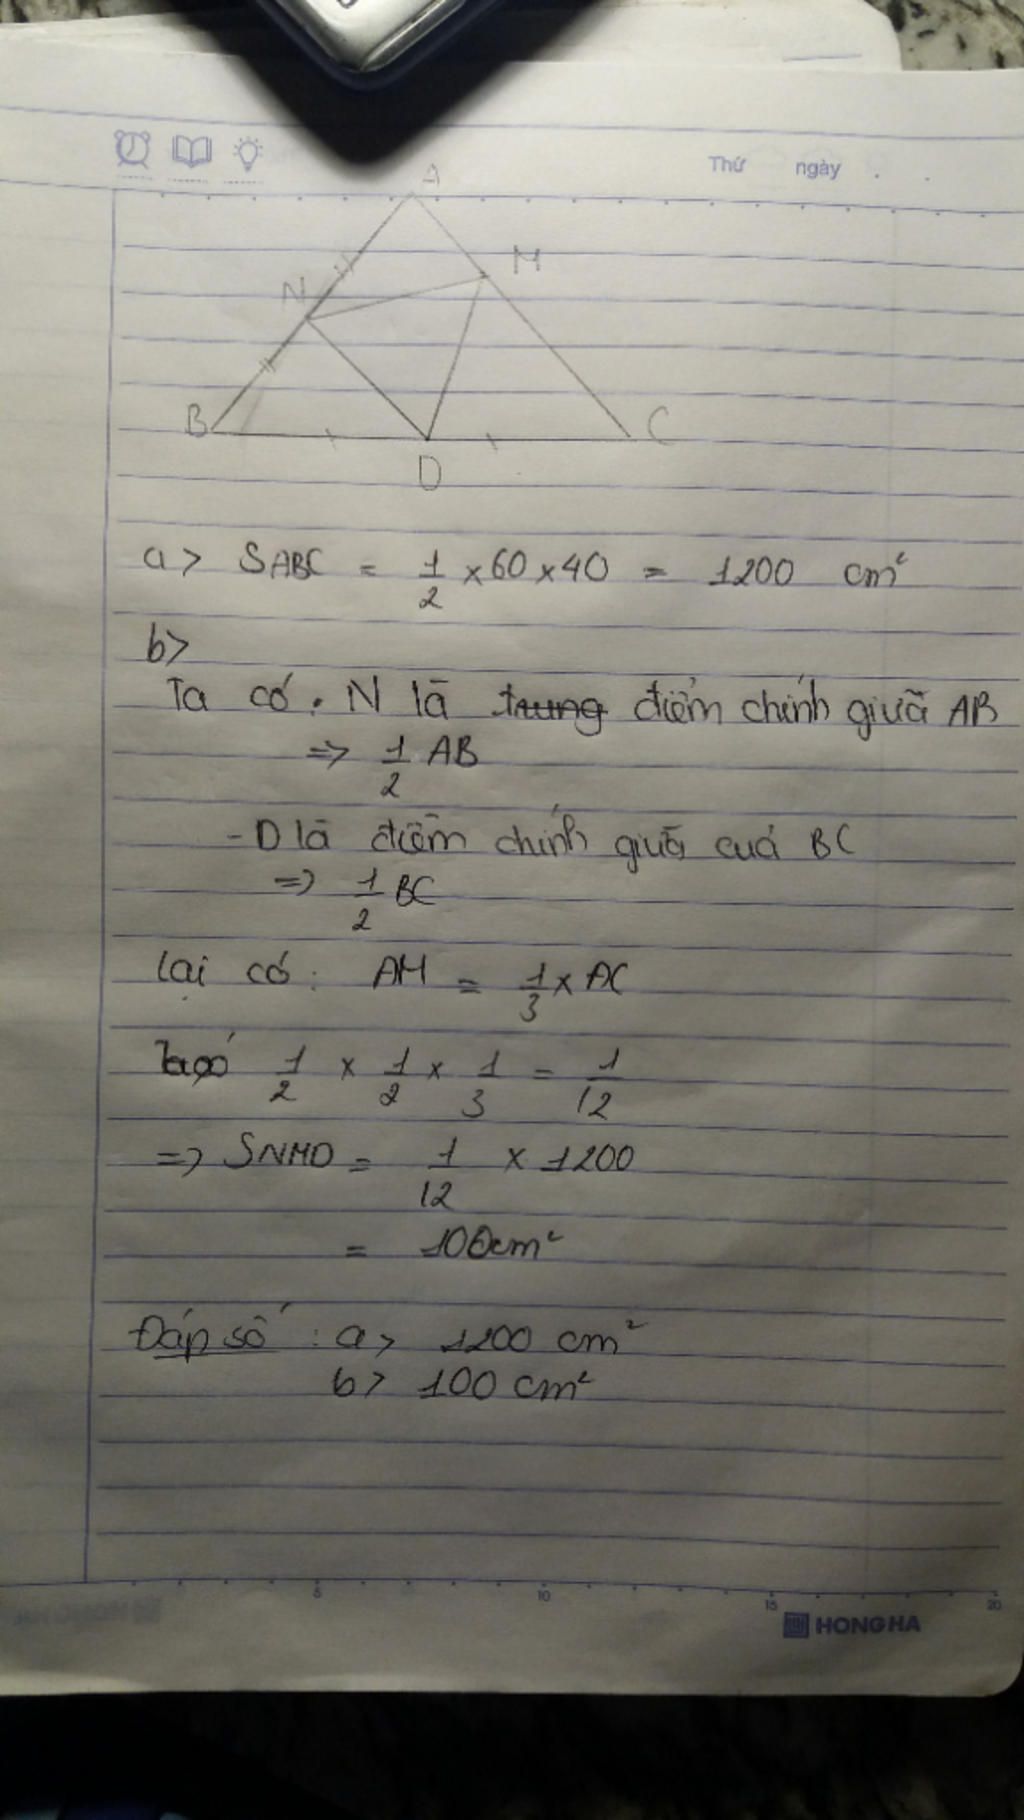 Thứ ngày
A
M
N
B
C
D
a> SABC = 1/2 x 60 x 40 = 1200 cm²
b>
Ta có . N là trung điểm chính giữa AB
=> 1/2 AB
- D là điểm chính giữa của BC
=> 1/2 BC
Lại có : AM = 1/3 x AC
1/2 x 1/2 x 1/3 = 1/12
=> SNMD = 1/12 x 1200
= 100cm²
Đáp số : a> 1200 cm²
b> 100 cm²
5 10 15 20
HONG HA